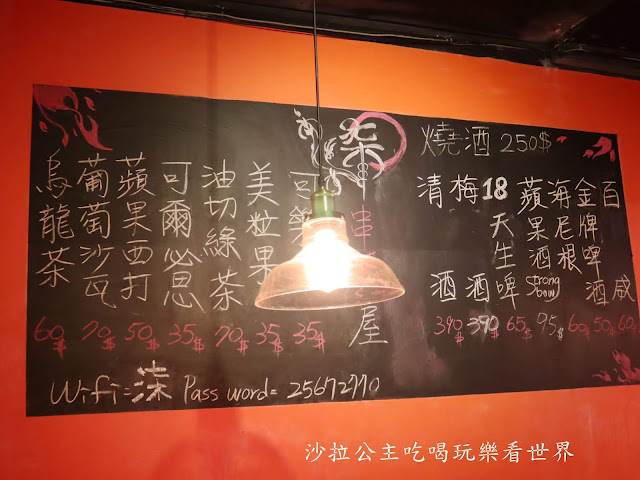 燒酒 250$
百威 60$
金牌啤酒 50$
海尼根 60$
蘋果酒 Strongbow 95$
18天生啤 65$
梅酒 390$
清酒 340$
柒 串 屋
可樂 35$
美粒果 35$
油切綠茶 70$
可爾必思 35$
蘋果西打 50$
葡萄沙瓦 70$
烏龍茶 60$
Wifi=柒 Password= 25672770
沙拉公主吃喝玩樂看世界